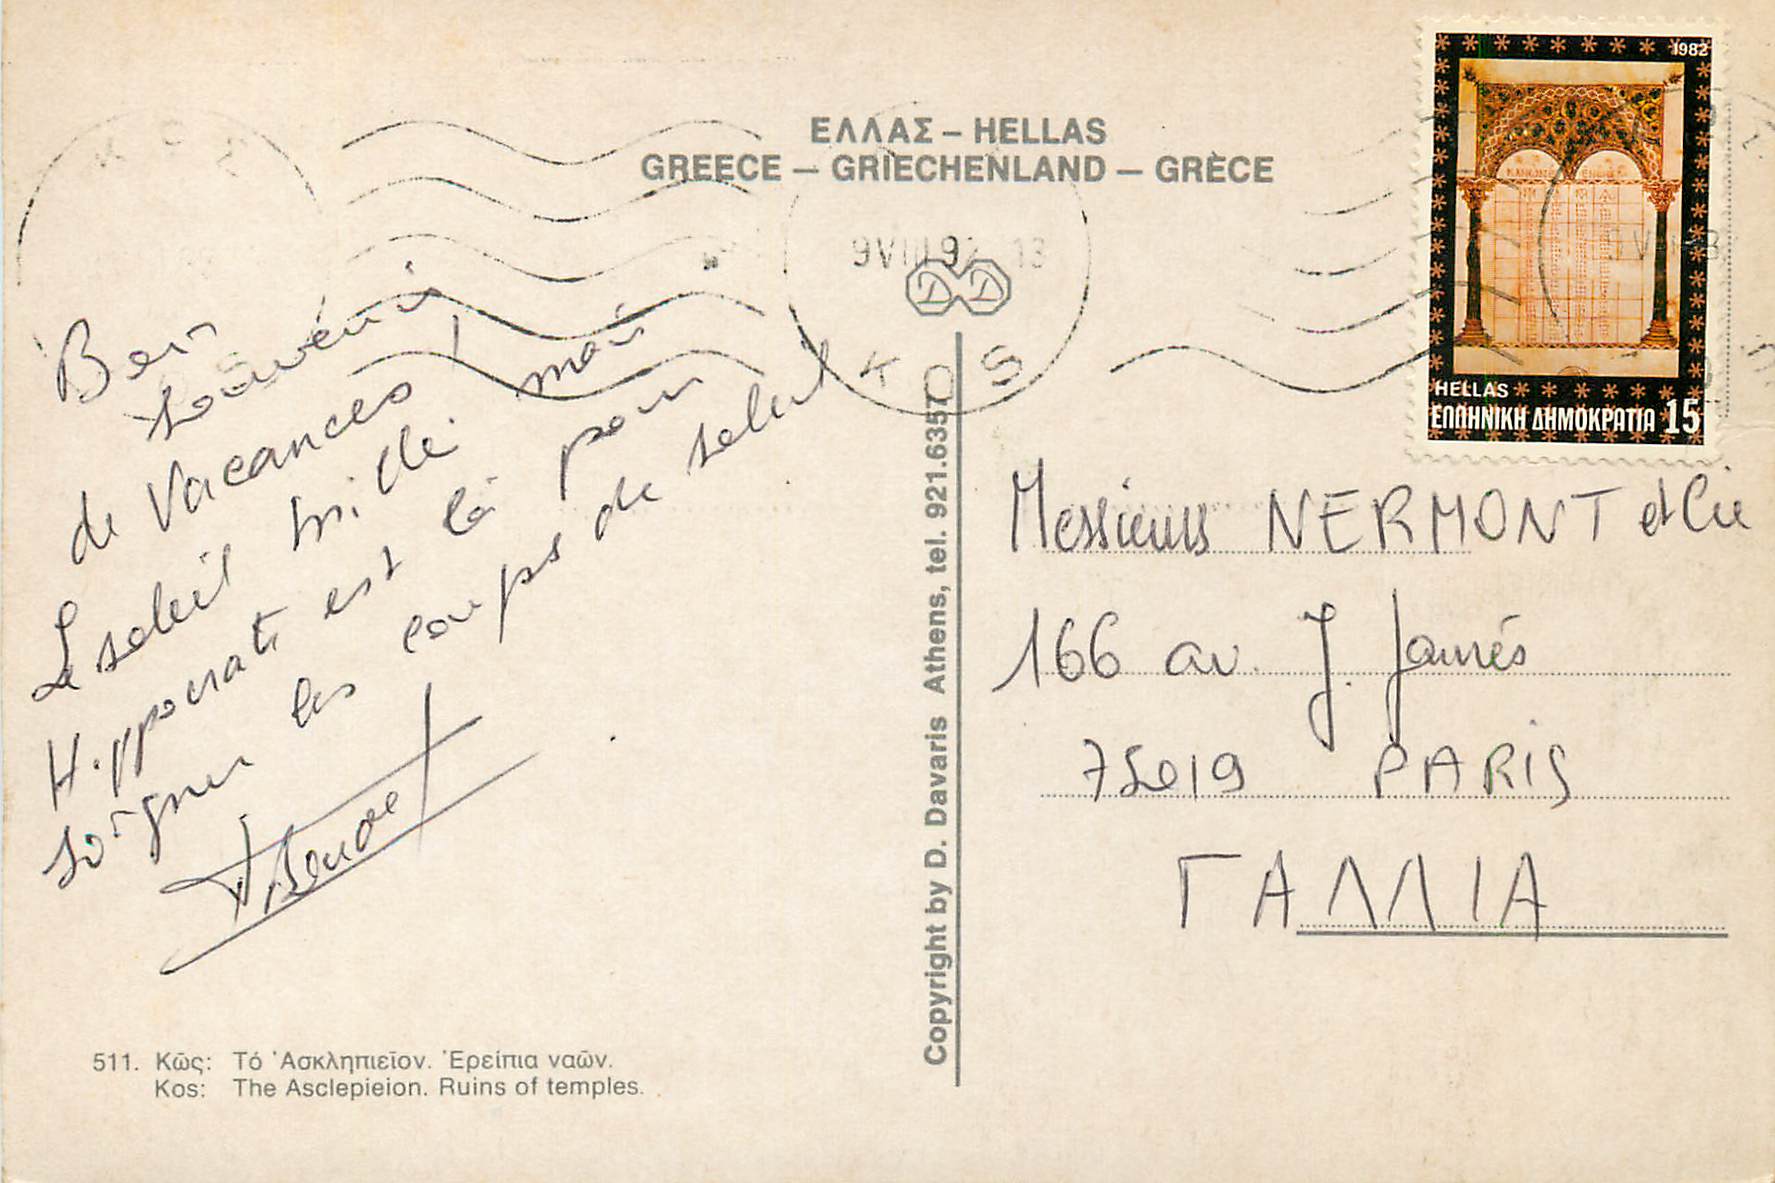 ΕΛΛΑΣ – HELLAS
GREECE – GRIECHENLAND – GRÈCE
1982
HELLAS
ΕΛΛΗΝΙΚΗ ΔΗΜΟΚΡΑΤΙΑ 15
9 VIII 9 13
ΚΩΣ
KOS
Bon
souvenir
de Vacances !
Le soleil brille mais
Hippocrate est là pour
soigner les coups de soleil
Messieurs NERMONT et Cie
166 av. J. Jaurés
75019 PARIS
ΓΑΛΛΙΑ
Copyright by D. Davaris Athens, tel. 921.6357
511. Κῶς: Τό Ἀσκληπιεῖον. Ἐρείπια ναῶν.
Kos: The Asclepieion. Ruins of temples.